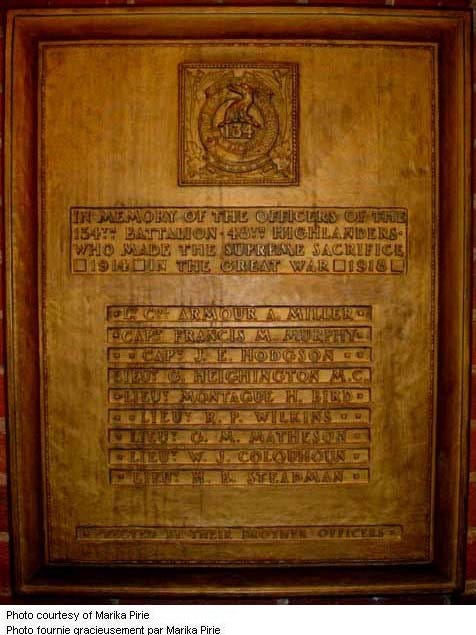 134
IN MEMORY OF THE OFFICERS OF THE
134TH BATTALION · 48TH HIGHLANDERS ·
WHO MADE THE SUPREME SACRIFICE
1914 IN THE GREAT WAR 1918
· LT COL ARMOUR A. MILLER ·
· CAPT FRANCIS M. MURPHY ·
· · CAPT J. E. HODGSON · ·
LIEUT G. HEIGHINGTON M.C.
· LIEUT MONTAGUE H. BIRD ·
· · LIEUT R. P. WILKINS · ·
· LIEUT O. M. MATHESON ·
· LIEUT W. J. COLQUHOUN ·
· LIEUT H. B. STEADMAN ·
· ERECTED BY THEIR BROTHER OFFICERS ·
Photo courtesy of Marika Pirie
Photo fournie gracieusement par Marika Pirie